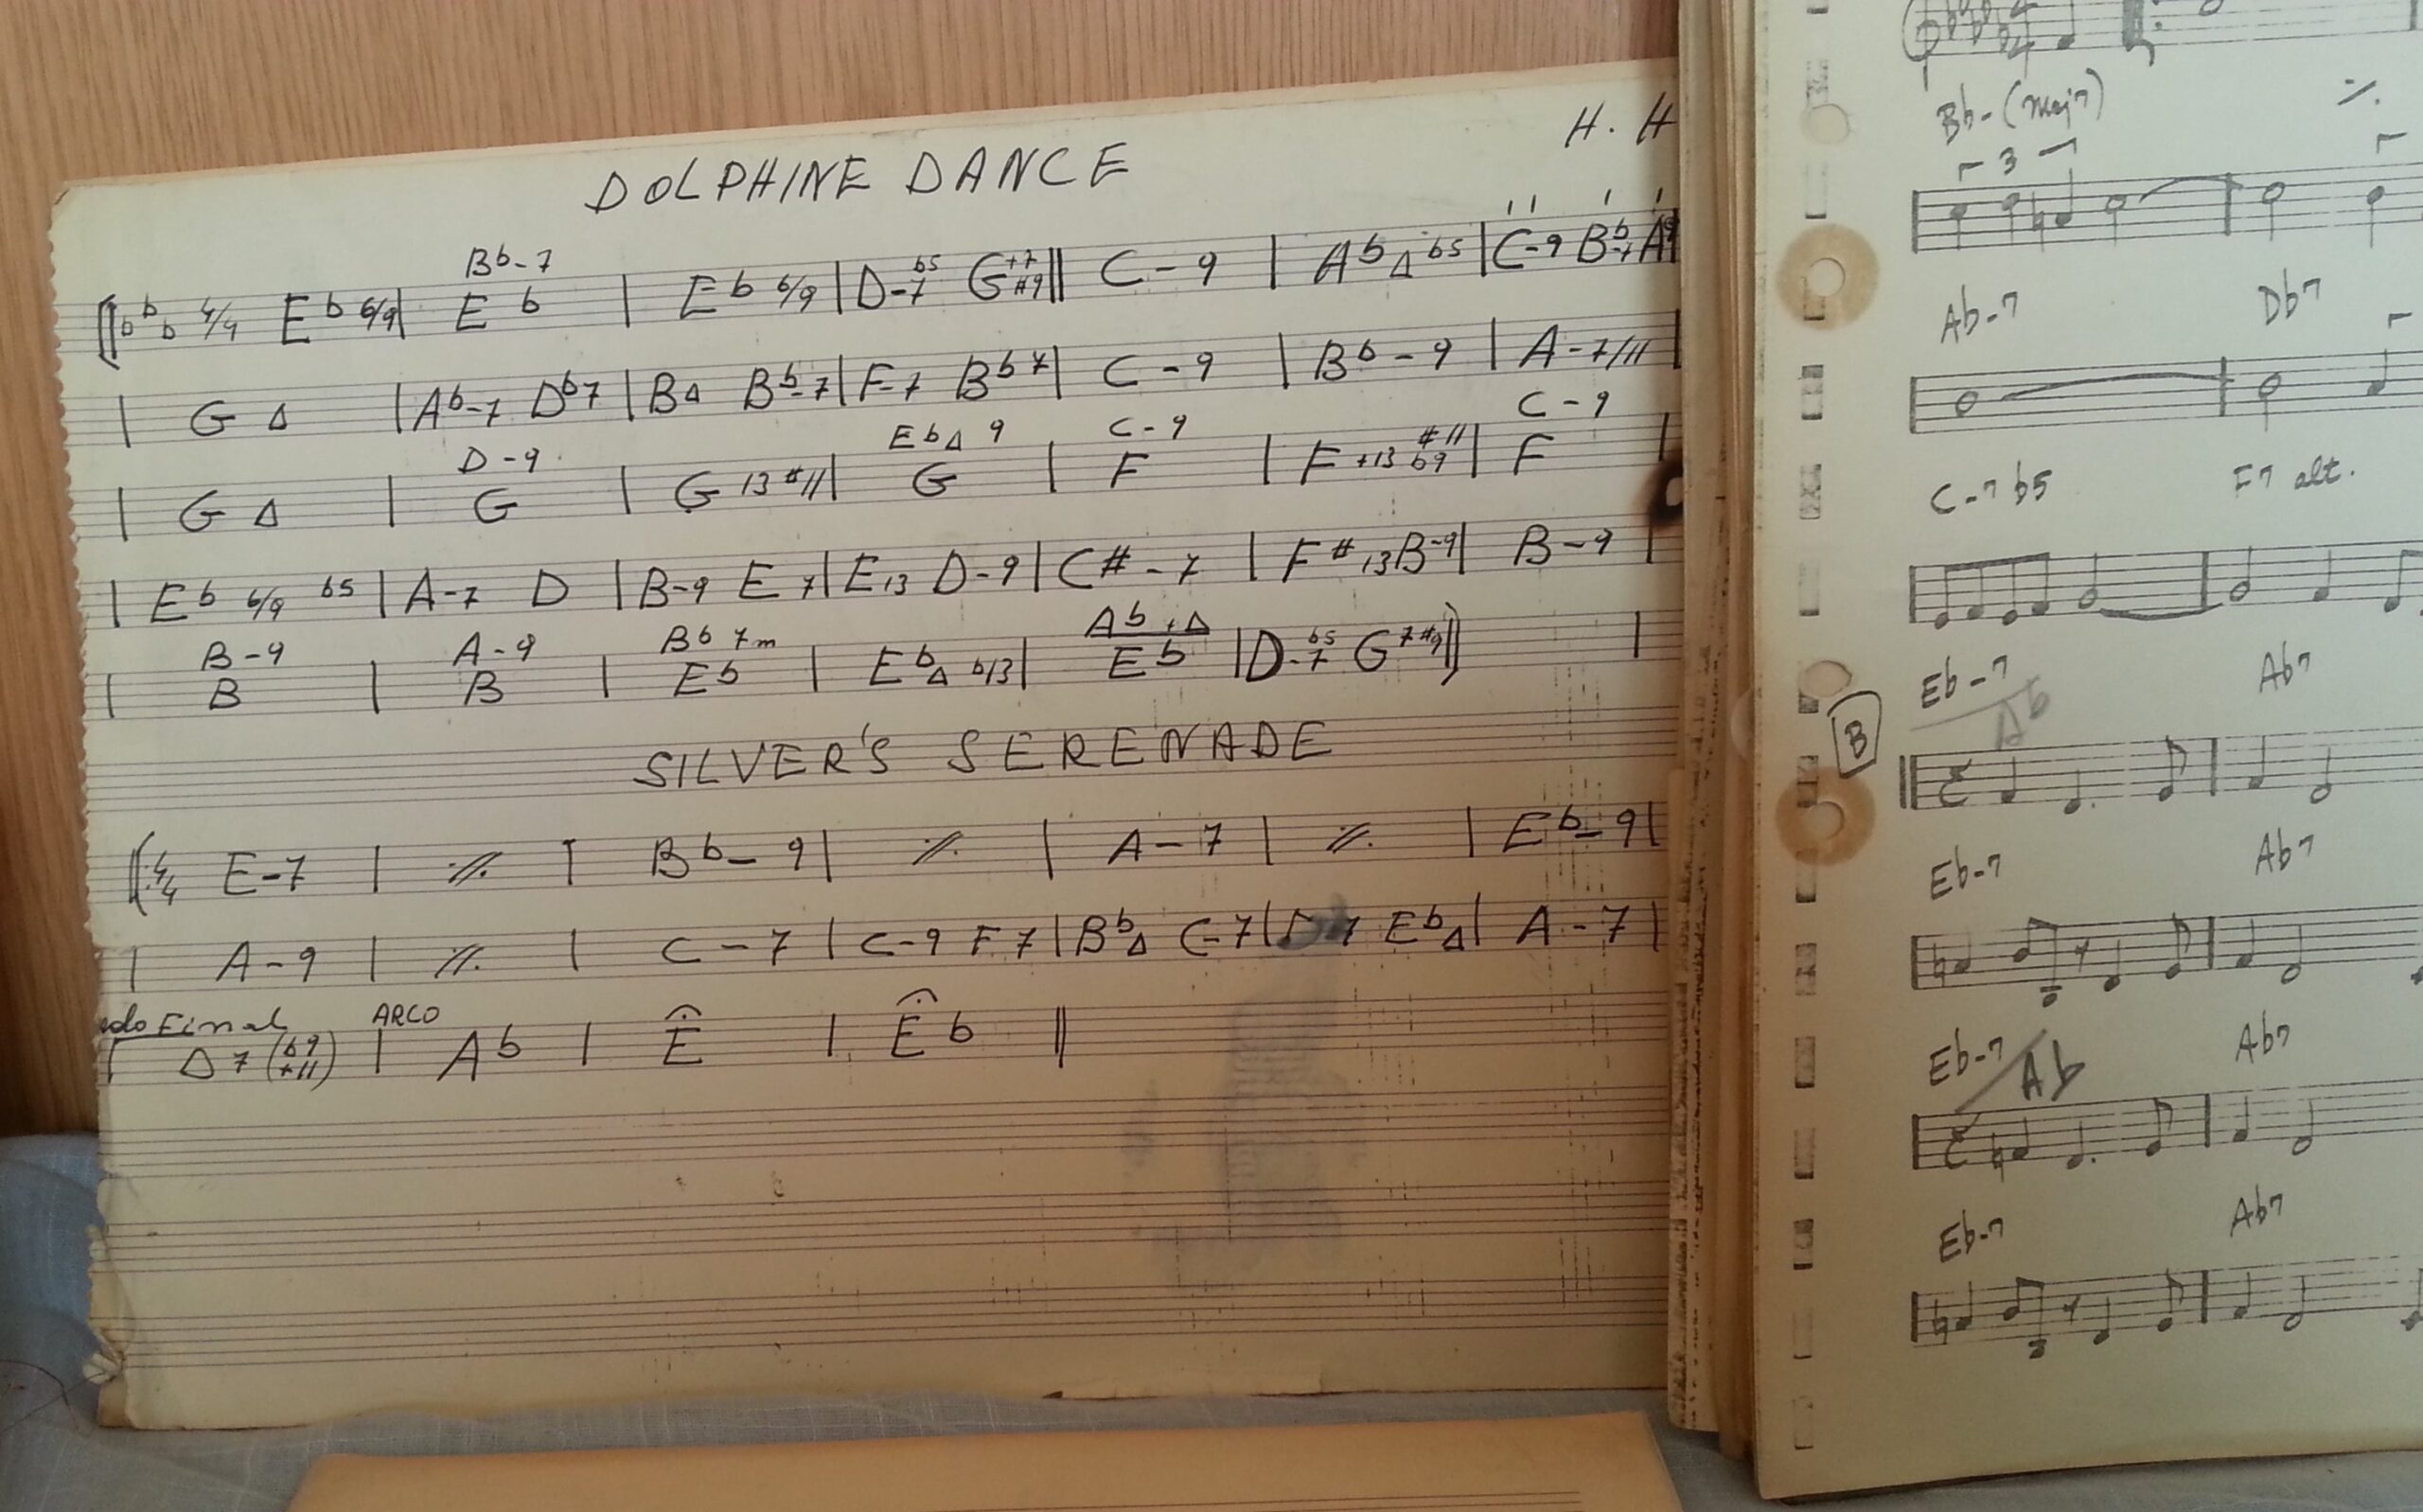 DOLPHINE DANCE
H. H
Bb-7
bbb 4/4 Eb 6/9 | Eb | Eb 6/9 | D-7 b5 G+7 #9 || C-9 | Ab Δ b5 | C-9 Bb-7
| G Δ | Ab-7 Db7 | BΔ Bb-7 | F-7 Bb7 | C-9 | Bb-9 | A-7/11 |
D-9 EbΔ 9 C-9 C-9
| G Δ | G | G 13 #11 | G | F | F +13 #11 b9 | F |
| Eb 6/9 b5 | A-7 D | B-9 E7 | E13 D-9 | C#-7 | F#13 B-9 | B-9 |
B-9 A-9 Bb 7m Ab+Δ
| B | B | Eb | EbΔ b13 | Eb | D-7 b5 G7#9 || |
SILVER'S SERENADE
4/4 E-7 | ٪ | Bb-9 | ٪ | A-7 | ٪ | Eb-9 |
| A-9 | ٪ | C-7 | C-9 F7 | BbΔ C-7 | 7 EbΔ | A-7 |
Final ARCO
| D7 (b9 +11) | Ab | E | Eb ||
4
Bb-(maj7) ٪
3
Ab-7 Db7
C-7 b5 F7 alt.
Eb-7 Ab7
Ab
B
Eb-7 Ab7
Eb-7/Ab Ab7
Eb-7 Ab7